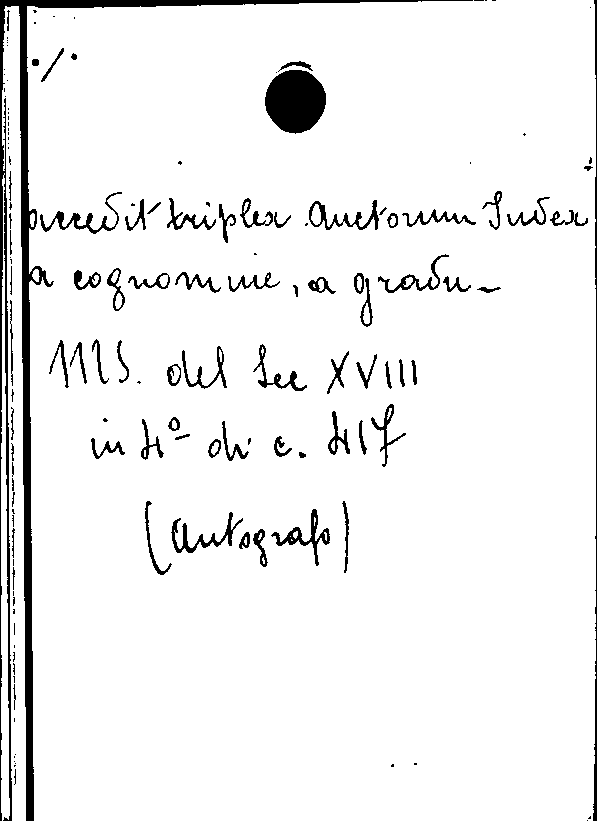 ./.
accedit triplex Auctorum Index
a cognomine, a gradu_
MS. del Sec XVIII
in 4º di c. 417
(Autografo)